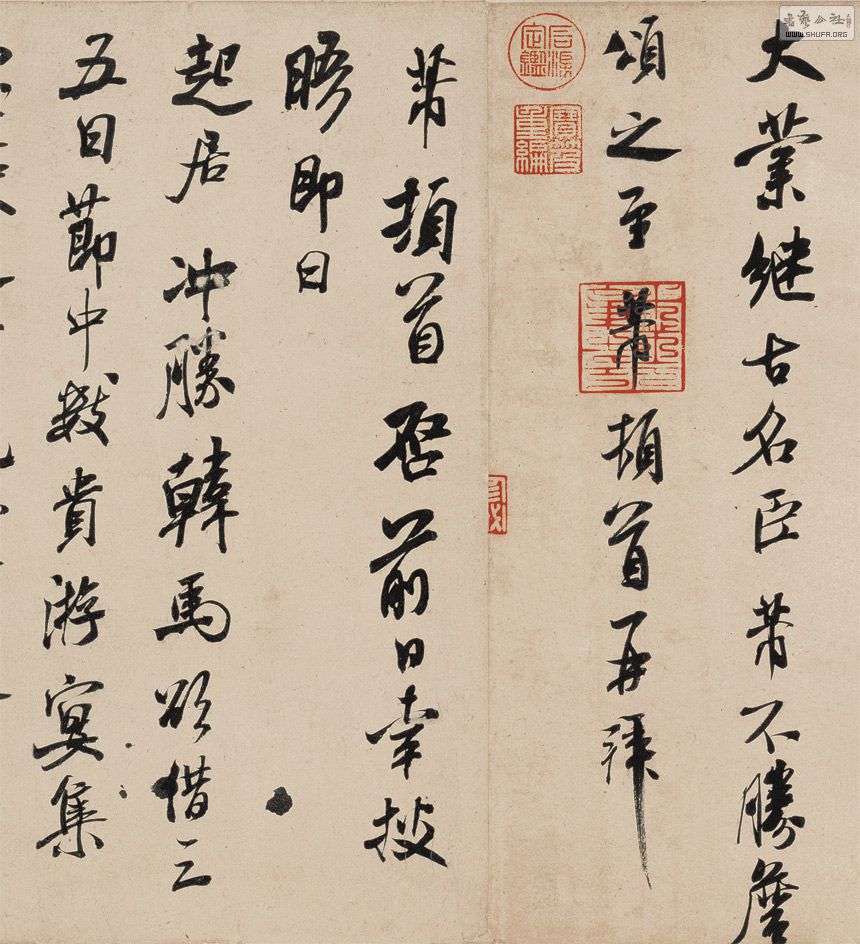 書藝公社
WWW.SHUFA.ORG
大業継古名臣芾不勝詹
頌之至芾頓首再拜
石渠定鑑
寶笈重編
芾頓首啓前日幸披
晤即日
起居冲勝韓馬欲借三
五日節中數貴游宴集